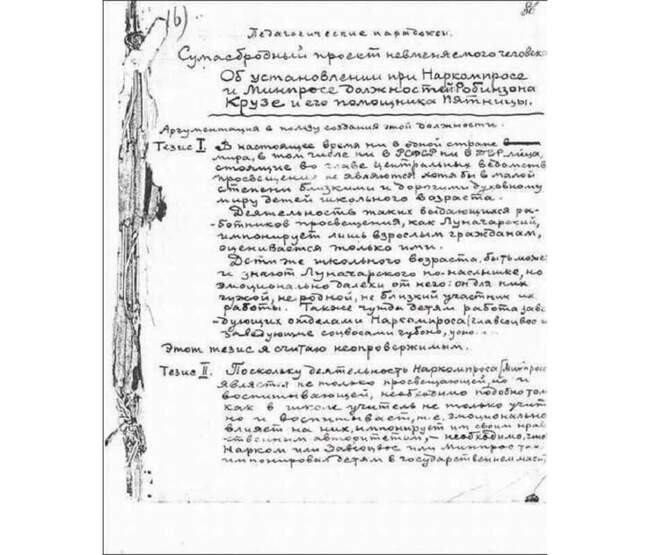 1б)
Педагогические парадоксы.
Сумасбродный проект невменяемого человека
Об установлении при Наркомпросе
и Минпросе должностей Робинзона
Крузе и его помощника Пятницы.
Аргументация в пользу создания этой должности.
Тезис I. В настоящее время ни в одной стране
мира, в том числе ни в РСФСР ни в лица,
стоящие во главе центральных ведомств
просвещения не являются хотя бы в малой
степени близкими и дорогими духовному
миру детей школьного возраста.
Деятельность таких выдающихся ра-
ботников просвещения, как Луначарский,
импонирует лишь взрослым гражданам,
оценивается только ими.
Дети же школьного возраста, быть може
и знают Луначарского по-наслышке, но
эмоционально далеки от него: он для них
чужой, не родной, не близкий участник их
работы. Также чужда детям работа заве
дующих отделами Наркомпроса (главсоцвос и
заведующие соцвосами губоно, уоно...
Этот тезис я считаю неопровержимым.
Тезис II. Поскольку деятельность Наркомпроса (Минпрос
является не только просвещающей, но и
воспитывающей, необходимо подобно том
как в школе учитель не только учит
но и воспитывает, т.е. эмоционально
влияет на них, импонирует им своим нрав
ственным авторитетом, – необходимо, что
Нарком или Завсоцвос или Минпрос так
импонировал детям в государственном масш